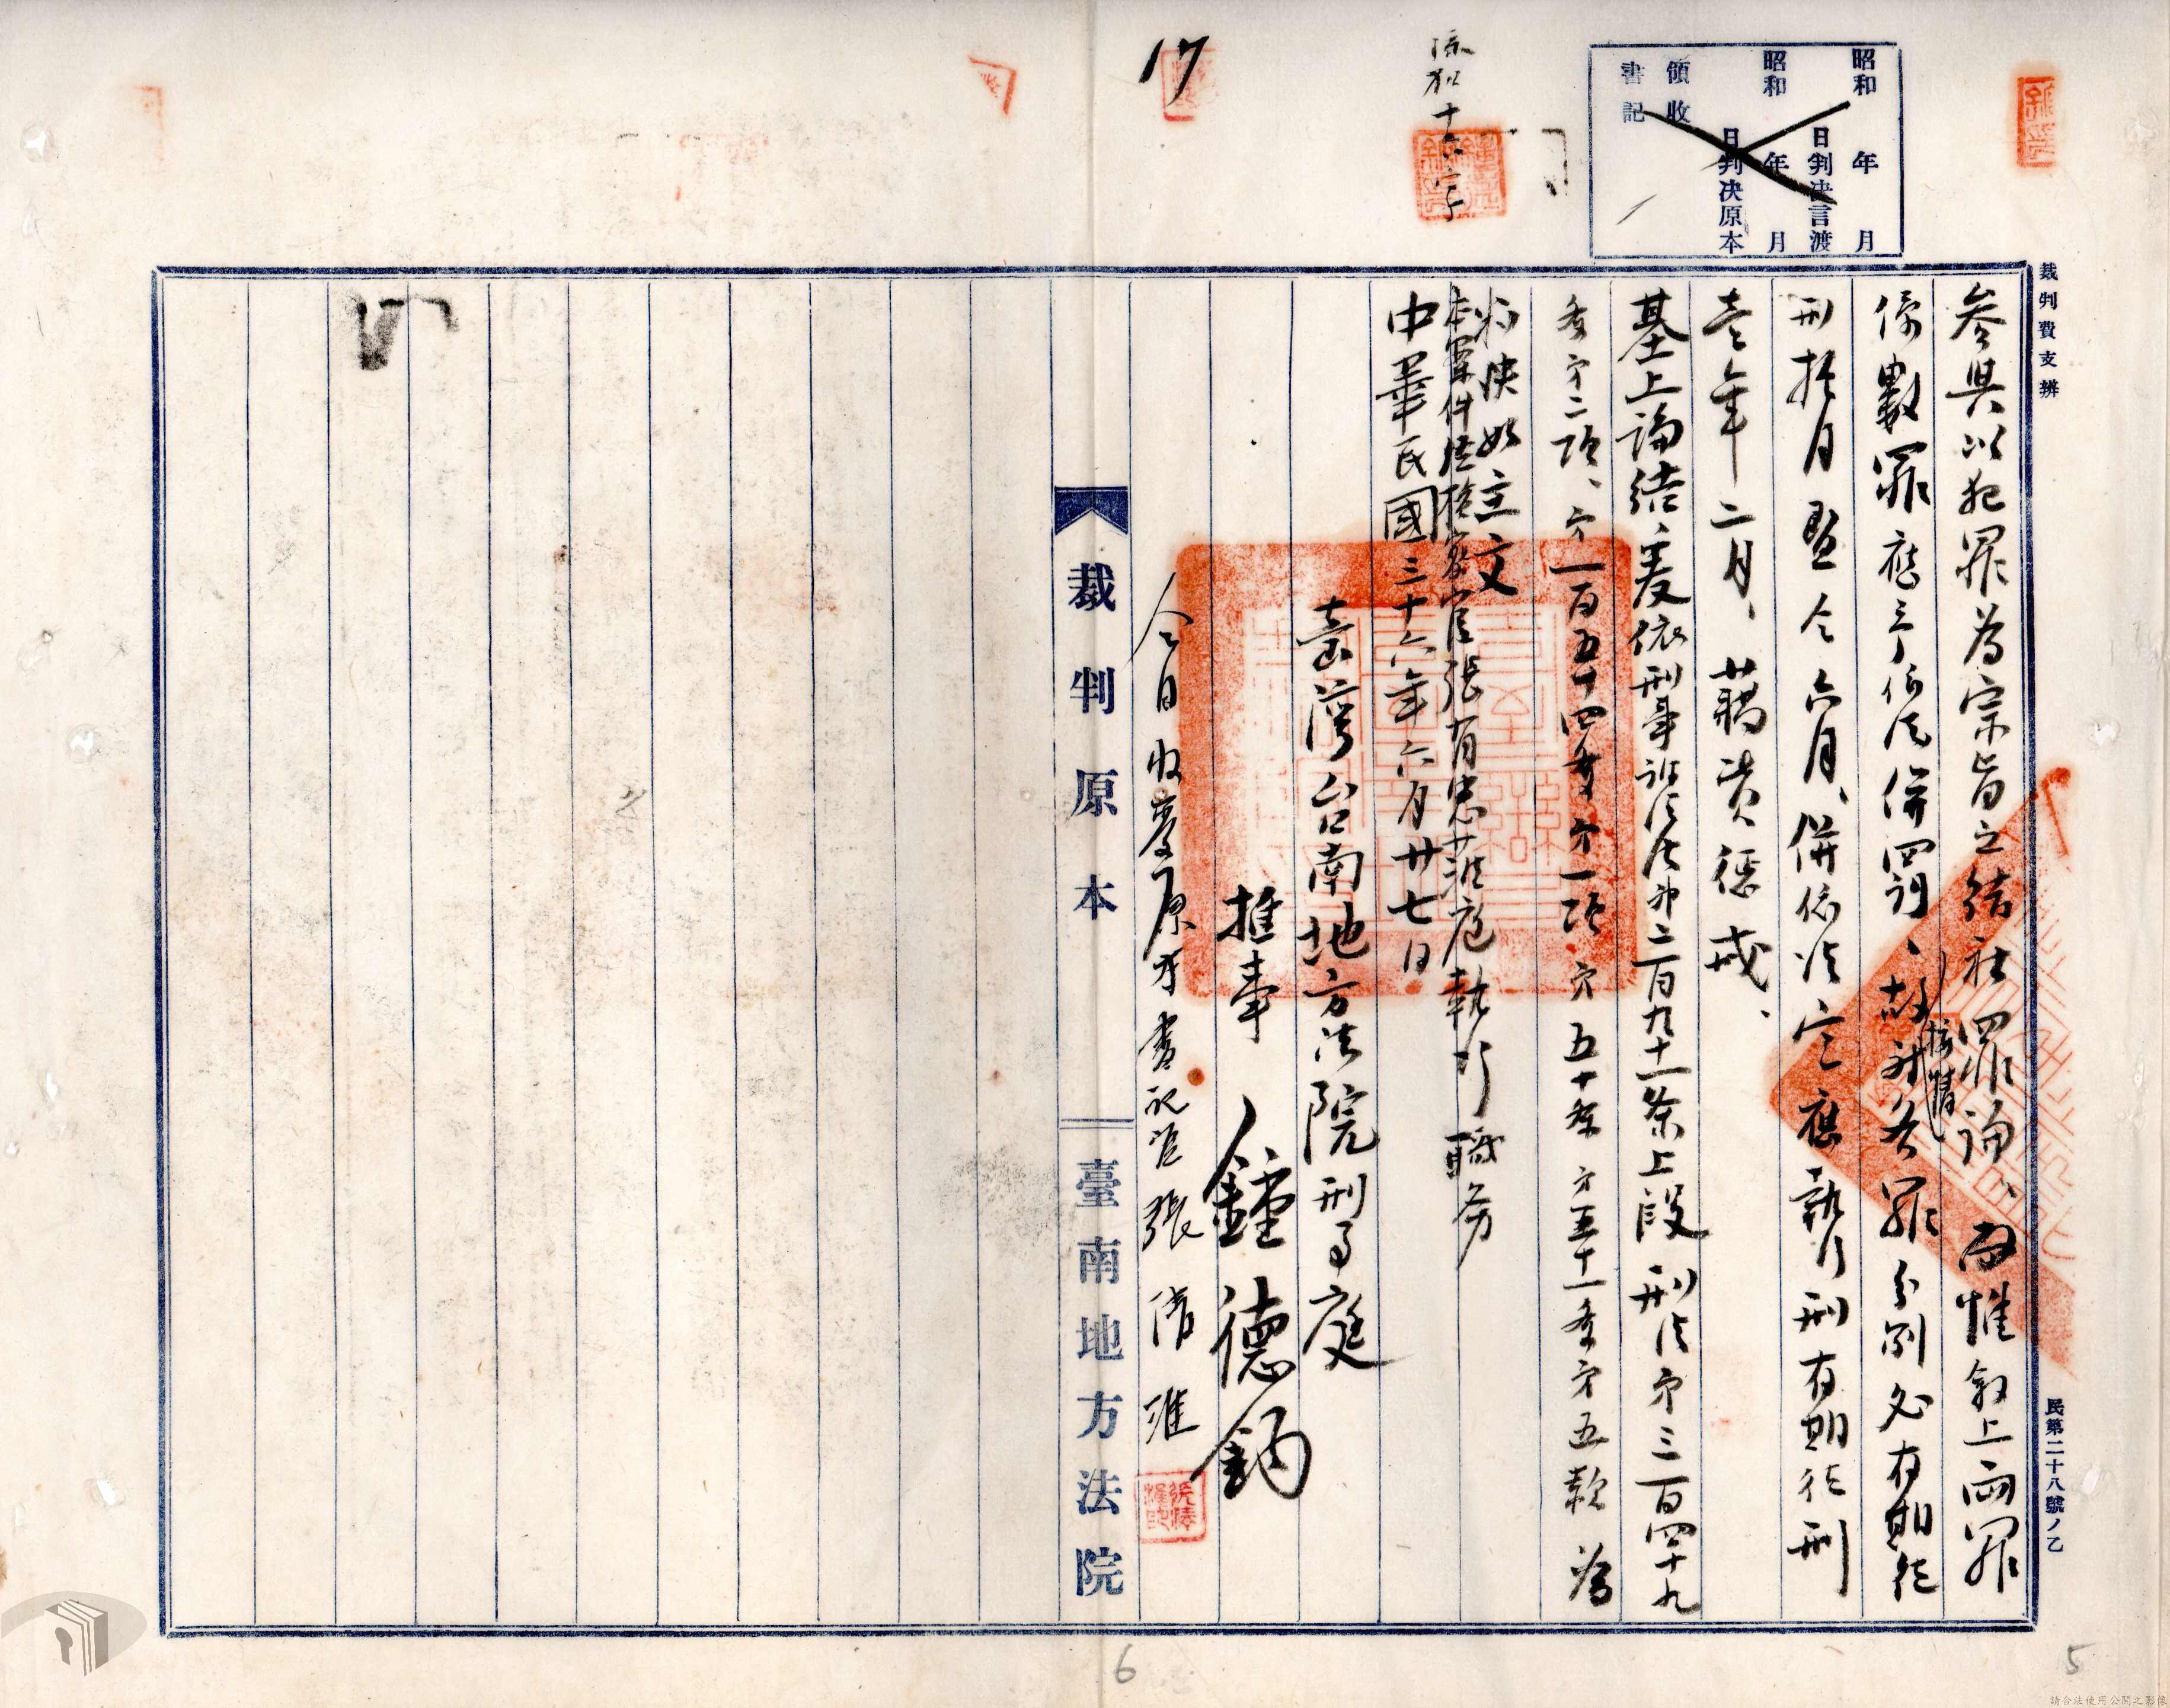 裁判費支辨
民第二十八號ノ乙
昭和 年 月
日判決言渡
昭和 年 月
日判決原本
領收
書記
添加十六字
17
參與以犯罪為宗旨之結社罪論、而惟敘上兩罪
係數罪應予依法併罰、故酌核情各罪分別處有期徒
刑拾月暨六月、併依法定應執行刑有期徒刑
壹年二月、藉資懲戒、
基上論結、爰依刑事訴訟法第二百九十一條上段刑法第三百四十九
條第二項、第一百五十四條第一項、第五十條第五十一條第五款為
判決如主文
本案件經檢察官張育忠蒞庭執行職務
中華民國三十六年六月廿七日
臺灣台南地方法院刑事庭
推事 鍾德鈞
今日收受原本書記官張清淮
裁判原本
臺南地方法院
6
5
請合法使用公開之影像